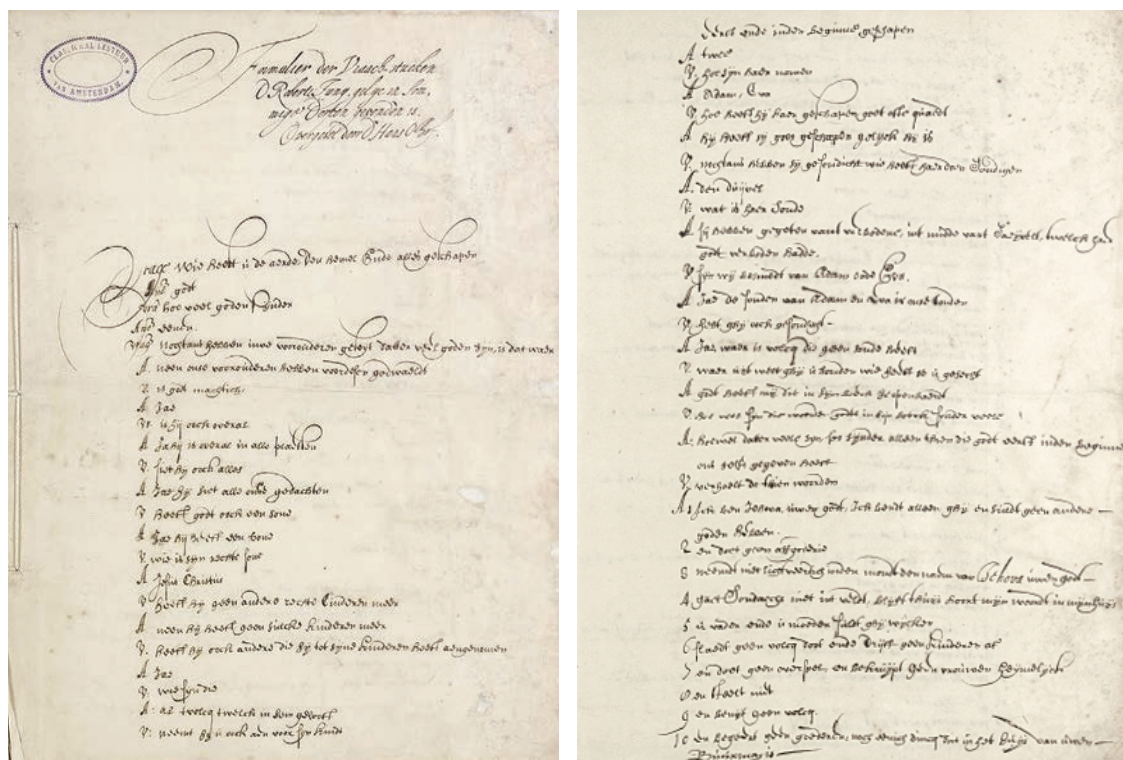 CLAS. IS AAL BESTUUR
VAN AMSTERDAM.
Formulier der Vraech-stucken
D. Roberti Junij, gelijc in som-
migen Dorpen gevonden is,
Overgeset door D. Hans Olhof.
Vrage Wie heeft u de aerde, den hemel Ende alles geschapen
Ant. godt
Vrag hoe veel goden sijnder
Ant. eenen.
Vrag Nochtans hebben uwe voorouderen geseyt datter veel goden sijn, is dat waer
A neen onse voorouderen hebben gedwaelt
V. is godt machtich
A Jae
V. is hij oock overal
A Ja hij is overal in alle plaetsen
V. siet hij oock alles
A Jae hij siet alle onse gedachten
V heeft godt oock een sone
A Jae hij heeft een sone
V. wie is sijn rechte sone
A Jesus Christus
V heeft hij geen andere rechte kinderen meer
A neen hij heeft geen sulcke kinderen meer
V. heeft hij oock andere die hij tot sijne kinderen heeft aengenomen
A Jae
V. wie sijn die
A. al 't volcq twelck in hem gelooft
V. neemt hij u oock aen voor sijn kindt
eerst ende inden beginne geschapen
A twee
V. hoe sijn haer namen
A Adam, Eva
V. hoe heeft hij haer geschapen goet ofte quaedt
A hij heeft sij goet geschapen gelijck hij is
V. nochtans hebben sij gesondicht wie heeft haer doen Sondigen
A. den duijvel
V. wat is haer Sonde
A Sij hebben gegeten vant verbodene, int midde vant Paradijs, twelck haer
godt verboden hadde.
V Sijn wij besmedt van Adam ende Eva.
A Jae de sonden van Adam en Eva is onse sonden
V. hebt ghij oock gesondicht
A Jae, waer is volcq die geen sonde heeft
V. waer uit weet ghij u sonden wie heeft se u geseght
A godt heeft mij dit in sijn woordt geopenbaert
V. hoe veel sijn die woorden godts in sijn boeck sijnder veele
A. hoewel datter veele sijn soo sijnder alleen thien die godt eerst inden beginne
ons selfs gegeven heeft
V verhaelt de thien woorden
A 1 Ick ben Jehova, uwen godt, Ick bendt alleen, ghij en sult geen andere
goden hebben.
2 en doet geen affgoderie
3 neemdt niet lichtveerdich inden mondt den naem van Jehova uwen godt
4. gaet Sondaechs niet int veldt, blijft thuijs hoort mijn woordt in mijn huijs
5 u vader ende u moeder sult ghij
6 slaedt geen volcq doot ende drijft geen kinderen af
7 en doet geen overspel, en bekruijpt geen vrouwen heijmelijck
8 en steelt niet
9 en liegt geen volcq
10 en begeert geen goederen, noch eenich dincq dat in het huijs van uwen